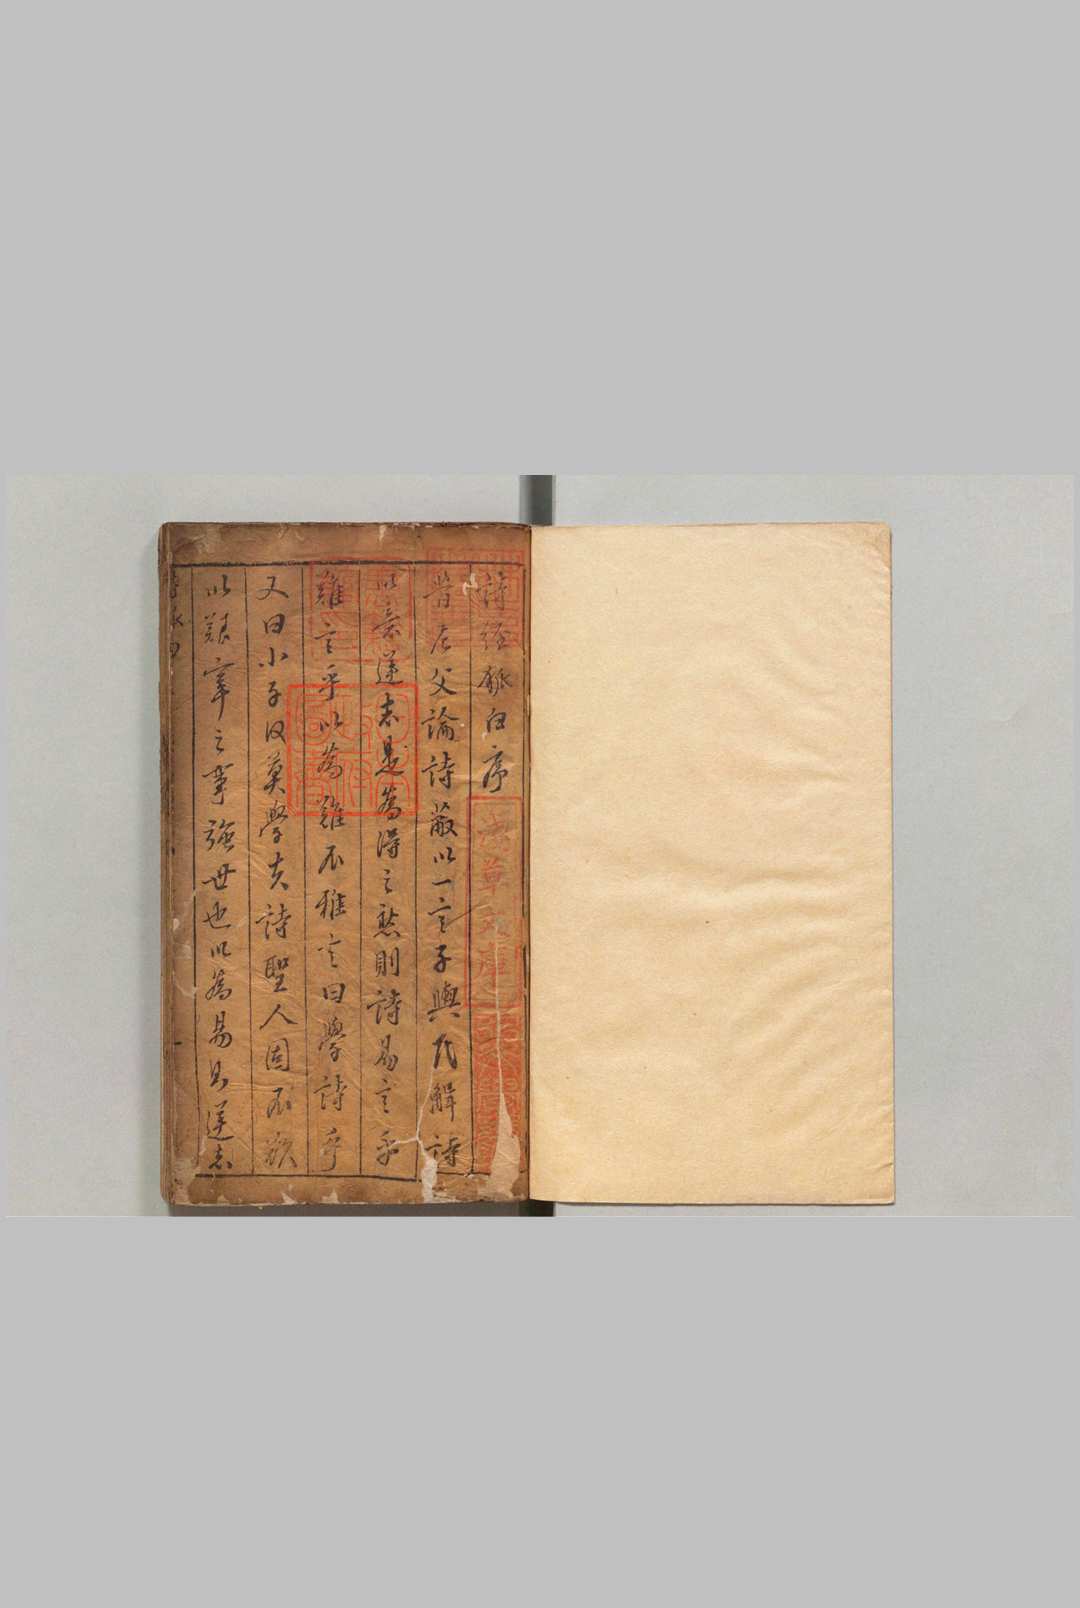 詩經狐白序
昔尼父論詩蔽以一言子輿氏解詩
以意逆志是為得之然則詩易言乎
難言乎以為難不雅言曰學詩乎
又曰小子何莫學夫詩聖人固不欲
以艱之事強世也以為易則逆志
淺草文庫